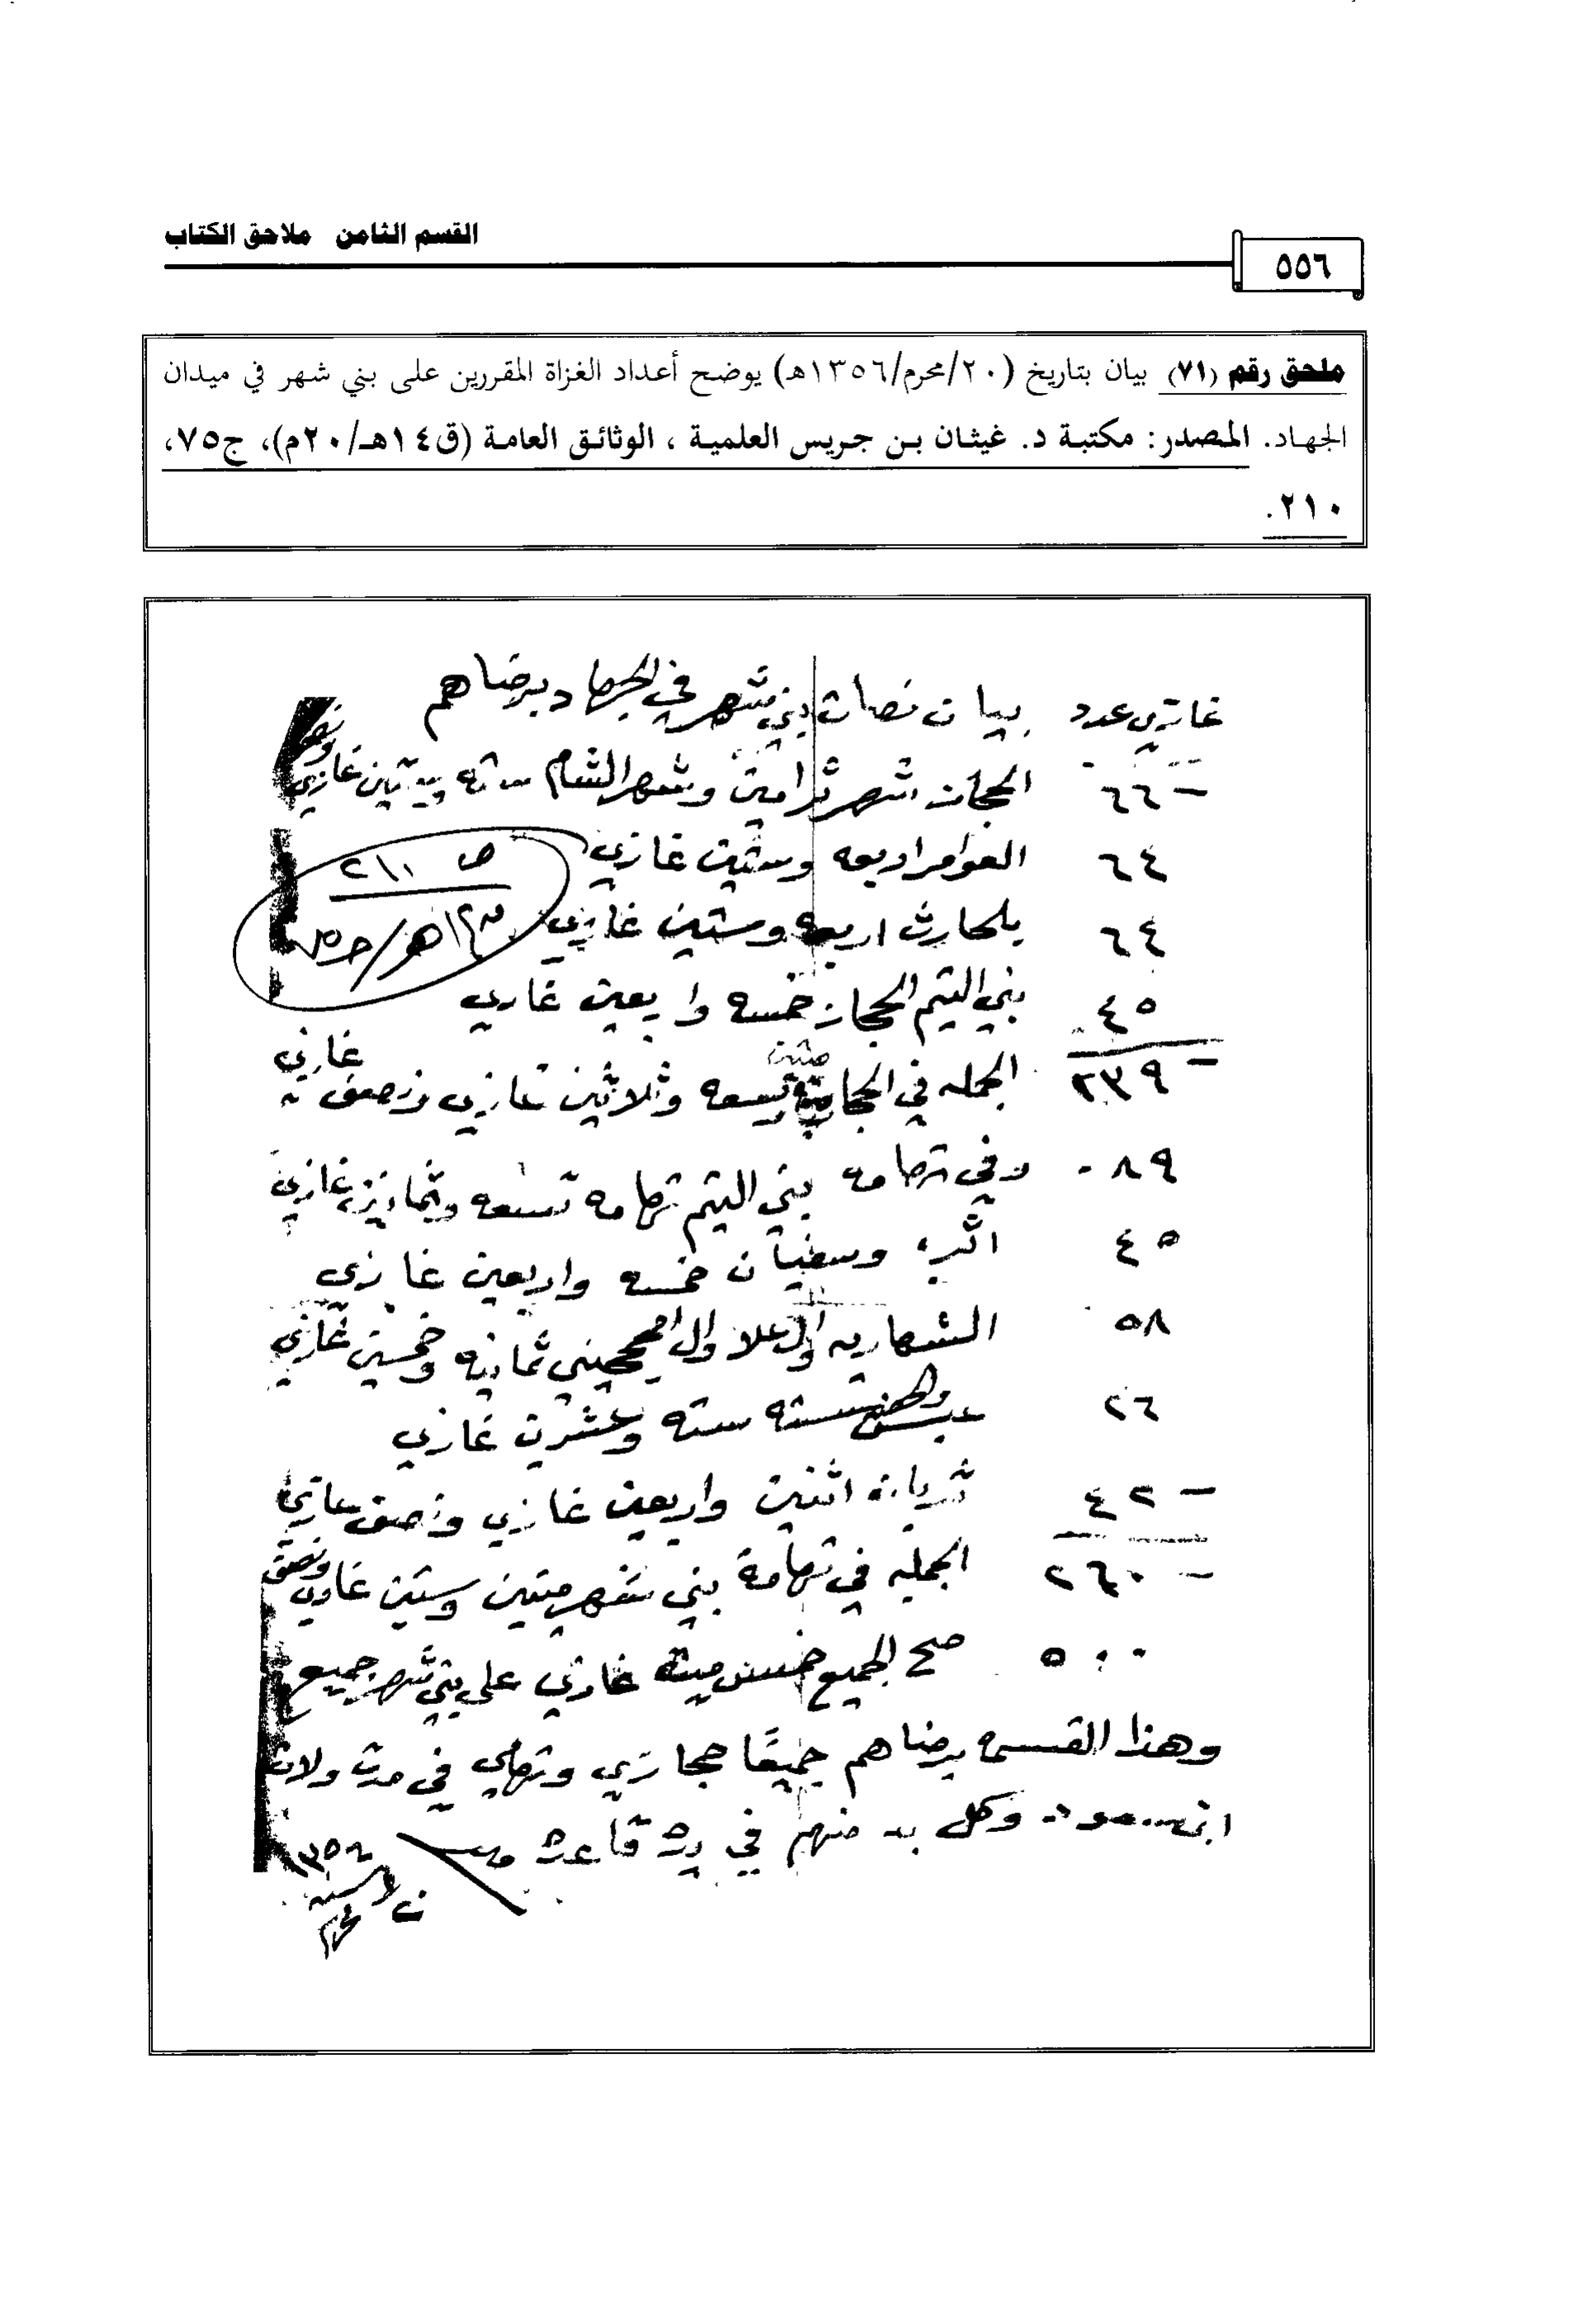 القسم الثامن ملاحق الكتاب
٥٥٦
ملحق رقم (٧١) بيان بتاريخ (٢٠/محرم/١٣٥٦هـ) يوضح أعداد الغزاة المقررين على بني شهر في ميدان
الجهاد. المصدر: مكتبة د. غيثان بن جريس العلمية ، الوثائق العامة (ق١٤هـ/٢٠م)، ج٧٥،
٢١٠.
غازي عدد بيان نصاب بني شهر في الجهاد برضاهم
٦٦ - شهر ثرامين وشهر الشام سته وستين غازي ونصف
٦٤ العوامر اربعه وستين غازي
ص ٢١١
٦٤ بلحارث اربعه وستين غازي
٤٥ بني التيم الحجاز خمسه واربعين غازي
٢٣٩ - الجمله في الحجاز ميتين تسعه وثلاثين غازي ونصف غازي
٨٩ وفي تهامه بني التيم تهامه تسعه وثمانين غازي
٤٥ اثرب وسفيان خمسه واربعين غازي
٥٨ الشهاريه وال علا وال ثمانيه وخمسين غازي
٢٦ سته وعشرين غازي
٤٢ - ثربان اثنين واربعين غازي ونصف غازي
٢٦٠ - الجمله في تهامة بني شهر ميتين وستين غازي ونصف
٥٠٠ صح الجميع خمس مية غازي على بني شهر جميع
وهذا القسمه برضاهم جميعًا حجازي وتهامي في مدت ولات
ابن سعود وكل بد منهم في يده قاعده
محرم سنة ١٣٥٦